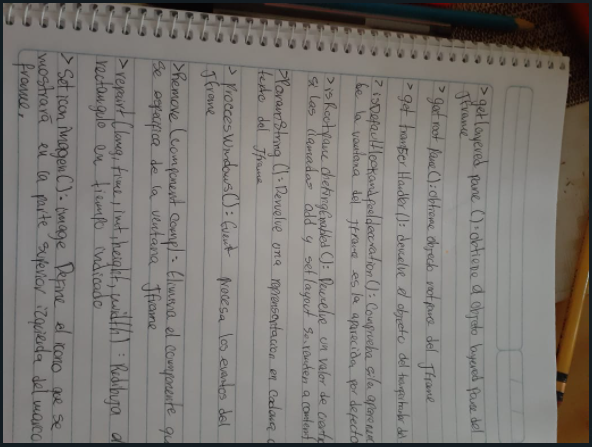 > get layered pane (): obtiene el objeto layered pane del
JFrame
> get root pane(): Obtiene objeto root pane del JFrame
> get Transfer Handler(): devuelve el objeto del
> isDefaultlookandfeeldecoration(): Comprueba si la
be la ventana del JFrame es la aparecida por defecto
> is Rootpane chetingEnabled(): Devuelve un valor de
si las llamadas add y set layout se content
> ParamString (): Devuelve una representacion en cadena
texto del JFrame
> ProccesWindows(): Event procesa los eventos del
JFrame
> Remove (component comp)= Elimina el componente que
se especifica de la ventana JFrame
> repaint (long, time, int, height, width): Redibuja el
rectangulo en tiempo indicado
> Set icon imagen(): image Define el icono que se
mostrara en la parte superior izquierda del marco
frame.